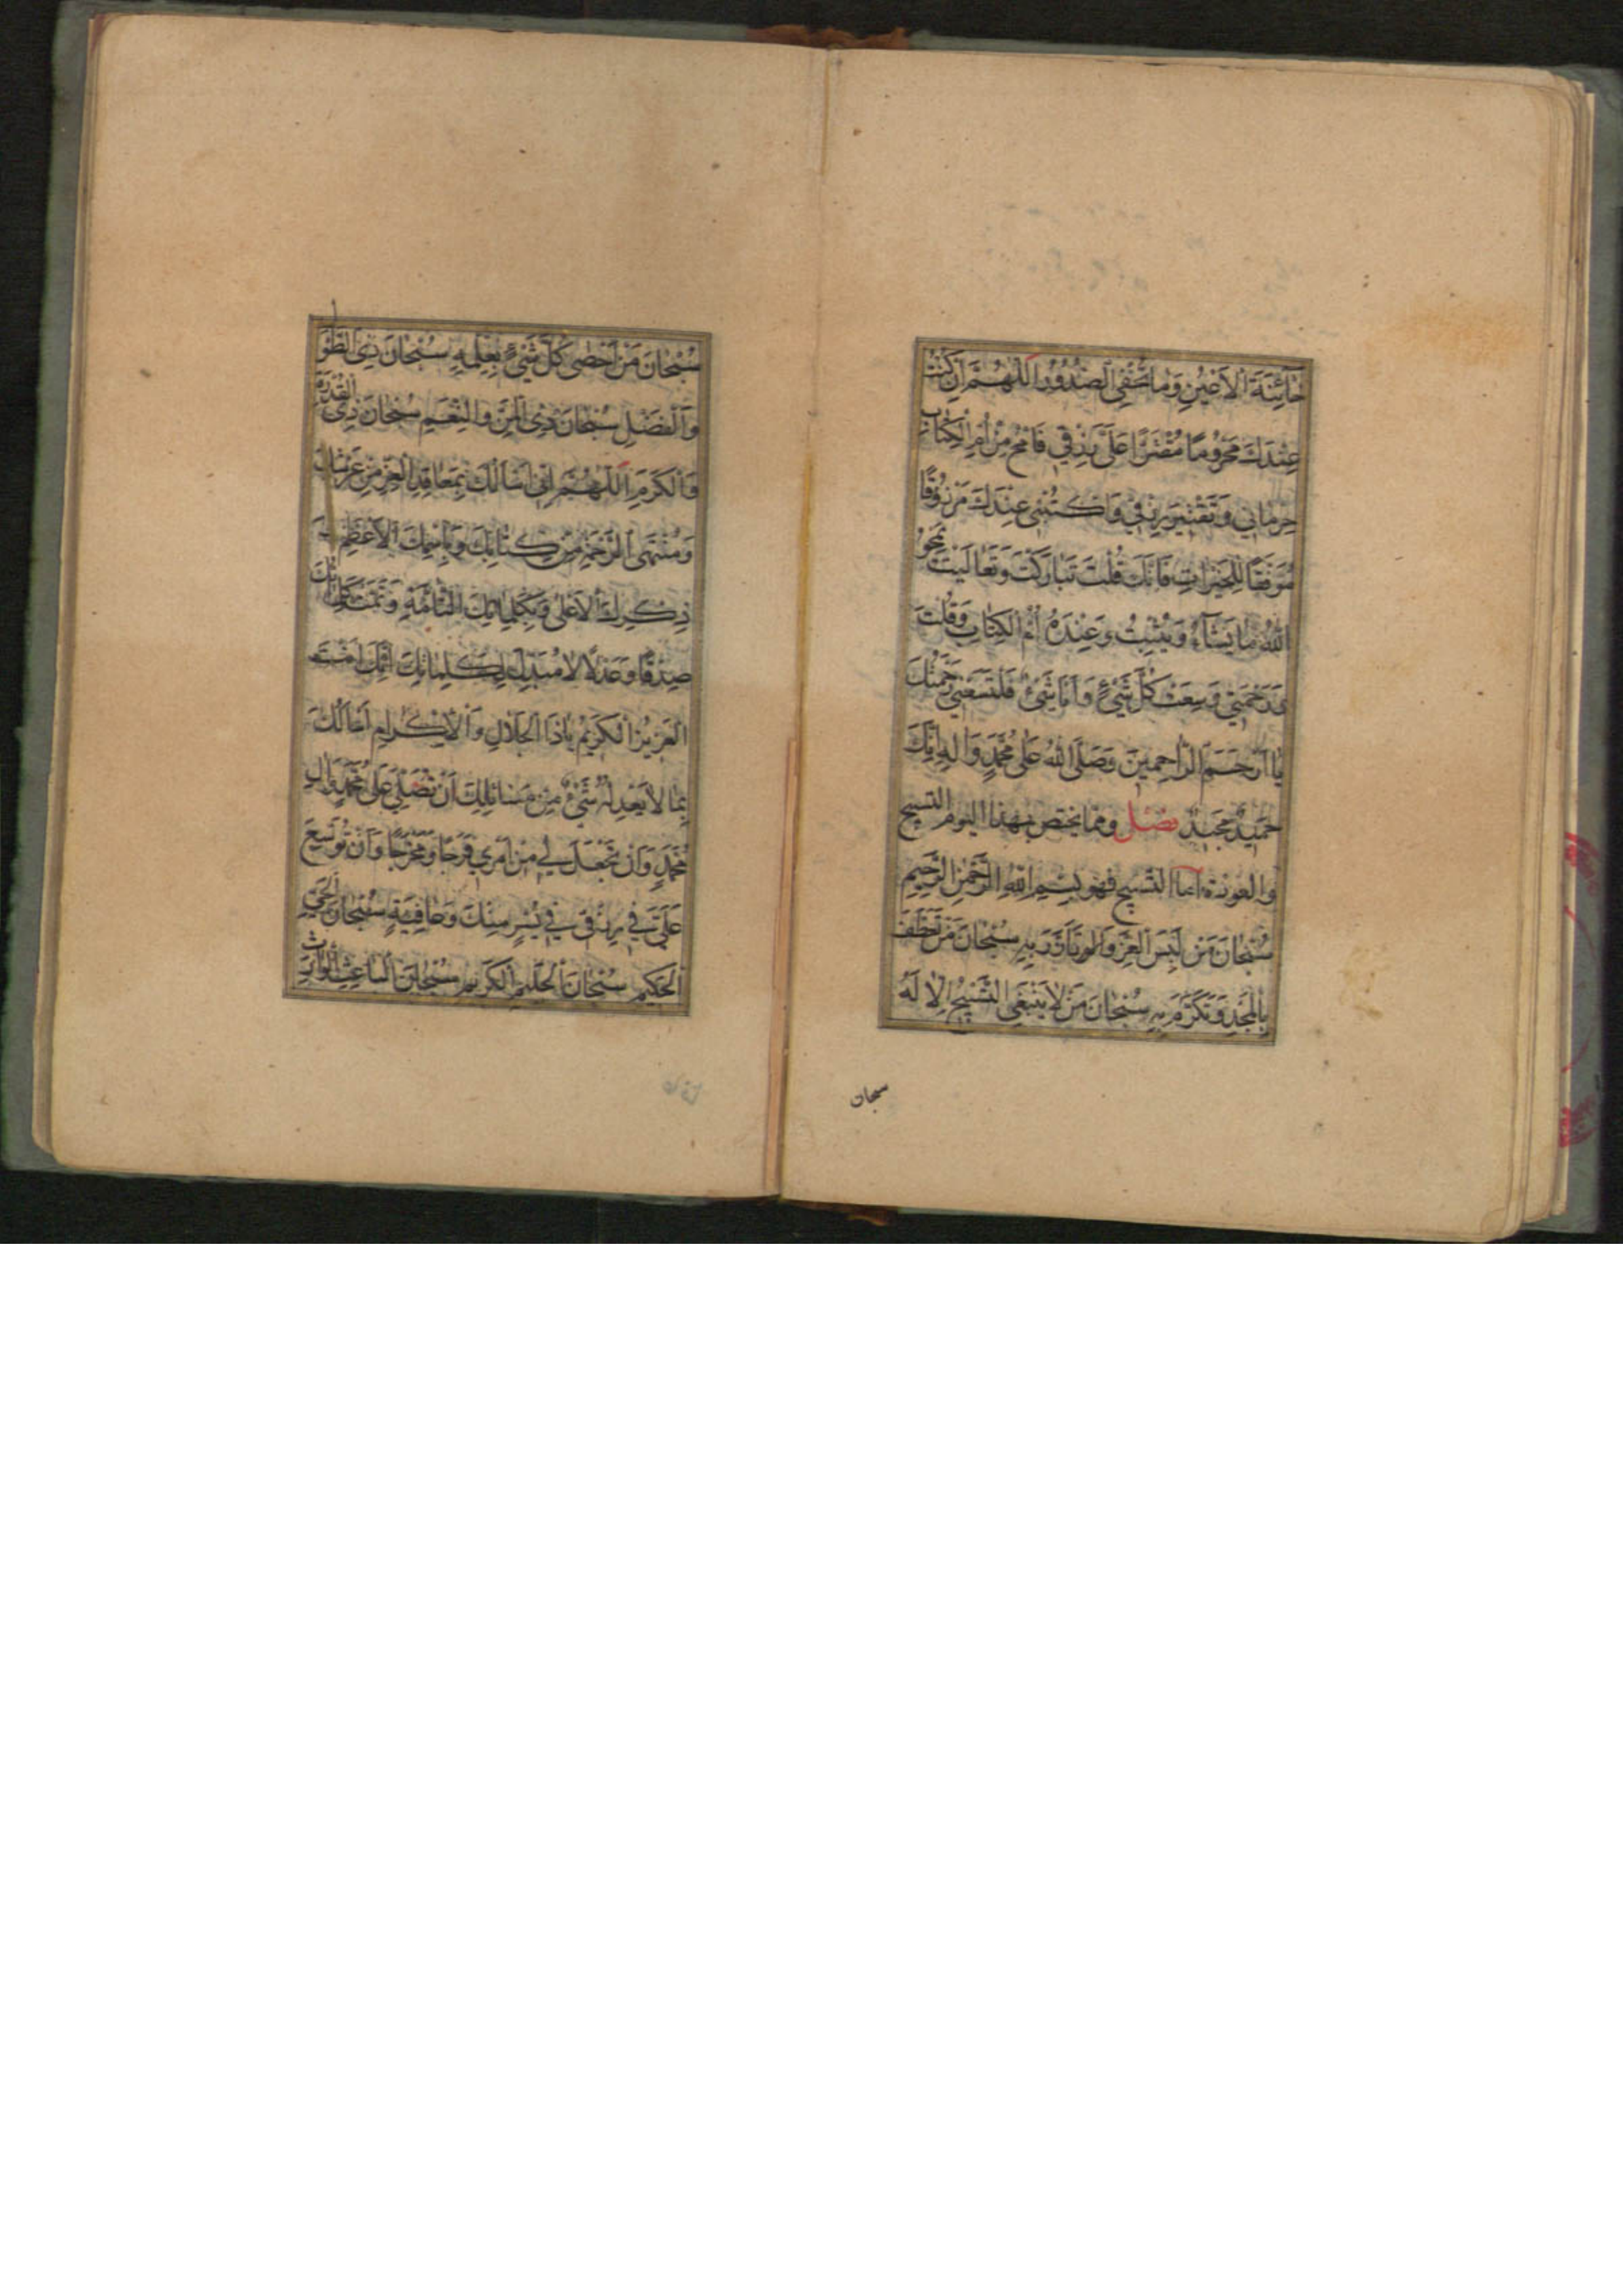 خَآئِنَةَ الْاَعْيُنِ وَمَا تُخْفِى الصُّدُورُ اَللّٰهُمَّ اِنْ كُنْتُ
عِنْدَكَ مَحْرُومًا مُقَتَّرًا عَلَىَّ رِزْقِي فَامْحُ مِنْ اُمِّ الْكِتَابِ
حِرْمَانِي وَتَقْتِيرَ رِزْقِي وَاكْتُبْنِي عِنْدَكَ مَرْزُوقًا
مُوَفَّقًا لِلْخَيْرَاتِ فَاِنَّكَ قُلْتَ تَبَارَكْتَ وَتَعَالَيْتَ يَمْحُو
اللّٰهُ مَا يَشَآءُ وَيُثْبِتُ وَعِنْدَهُ اُمُّ الْكِتَابِ وَقُلْتَ
وَرَحْمَتِي وَسِعَتْ كُلَّ شَيْءٍ وَاَنَا شَيْءٌ فَلْتَسَعْنِي رَحْمَتُكَ
يَا اَرْحَمَ الرَّاحِمِينَ وَصَلَّى اللّٰهُ عَلَى مُحَمَّدٍ وَالِهِ اِنَّكَ
حَمِيدٌ مَجِيدٌ فصل ومما يختص بهذا اليوم التسبيح
والعوذة اما التسبيح فهو بِسْمِ اللّٰهِ الرَّحْمٰنِ الرَّحِيمِ
سُبْحَانَ مَنْ لَبِسَ الْعِزَّ وَالْوِقَارَ سُبْحَانَ مَنْ تَعَطَّفَ
بِالْمَجْدِ وَتَكَرَّمَ بِهِ سُبْحَانَ مَنْ لَا يَنْبَغِي التَّسْبِيحُ اِلَّا لَهُ
سبحان
سُبْحَانَ مَنْ اَحْصٰى كُلَّ شَيْءٍ بِعِلْمِهِ سُبْحَانَ ذِى الطَّوْلِ
وَالْفَضْلِ سُبْحَانَ ذِى الْمَنِّ وَالنِّعَمِ سُبْحَانَ ذِى الْقُدْرَةِ
وَالْكَرَمِ اَللّٰهُمَّ اِنِّى اَسْاَلُكَ بِمَعَاقِدِ الْعِزِّ مِنْ عَرْشِكَ
وَمُنْتَهَى الرَّحْمَةِ مِنْ كِتَابِكَ وَبِاسْمِكَ الْاَعْظَمِ
ذِكْرِكَ الْاَعْلٰى وَبِكَلِمَاتِكَ التَّامَّةِ وَتَمَّتْ كَلِمَاتُكَ
صِدْقًا وَعَدْلًا لَا مُبَدِّلَ لِكَلِمَاتِكَ اِنَّكَ اَنْتَ
الْعَزِيزُ الْكَرِيمُ يَاذَا الْجَلَالِ وَالْاِكْرَامِ اَسْاَلُكَ
بِمَا لَا يَعْدِلُهُ شَيْءٌ مِنْ مَسَائِلِكَ اَنْ تُصَلِّيَ عَلَى مُحَمَّدٍ وَالِ
مُحَمَّدٍ وَاَنْ تَجْعَلَ لِي مِنْ اَمْرِي فَرَجًا وَمَخْرَجًا وَاَنْ تُوَسِّعَ
عَلَىَّ فِي رِزْقِي فِي يُسْرٍ مِنْكَ وَعَافِيَةٍ سُبْحَانَ الْحَيِّ
الْحَكِيمِ سُبْحَانَ الْحَلِيمِ الْكَرِيمِ سُبْحَانَ الْبَاعِثِ الْوَارِثِ